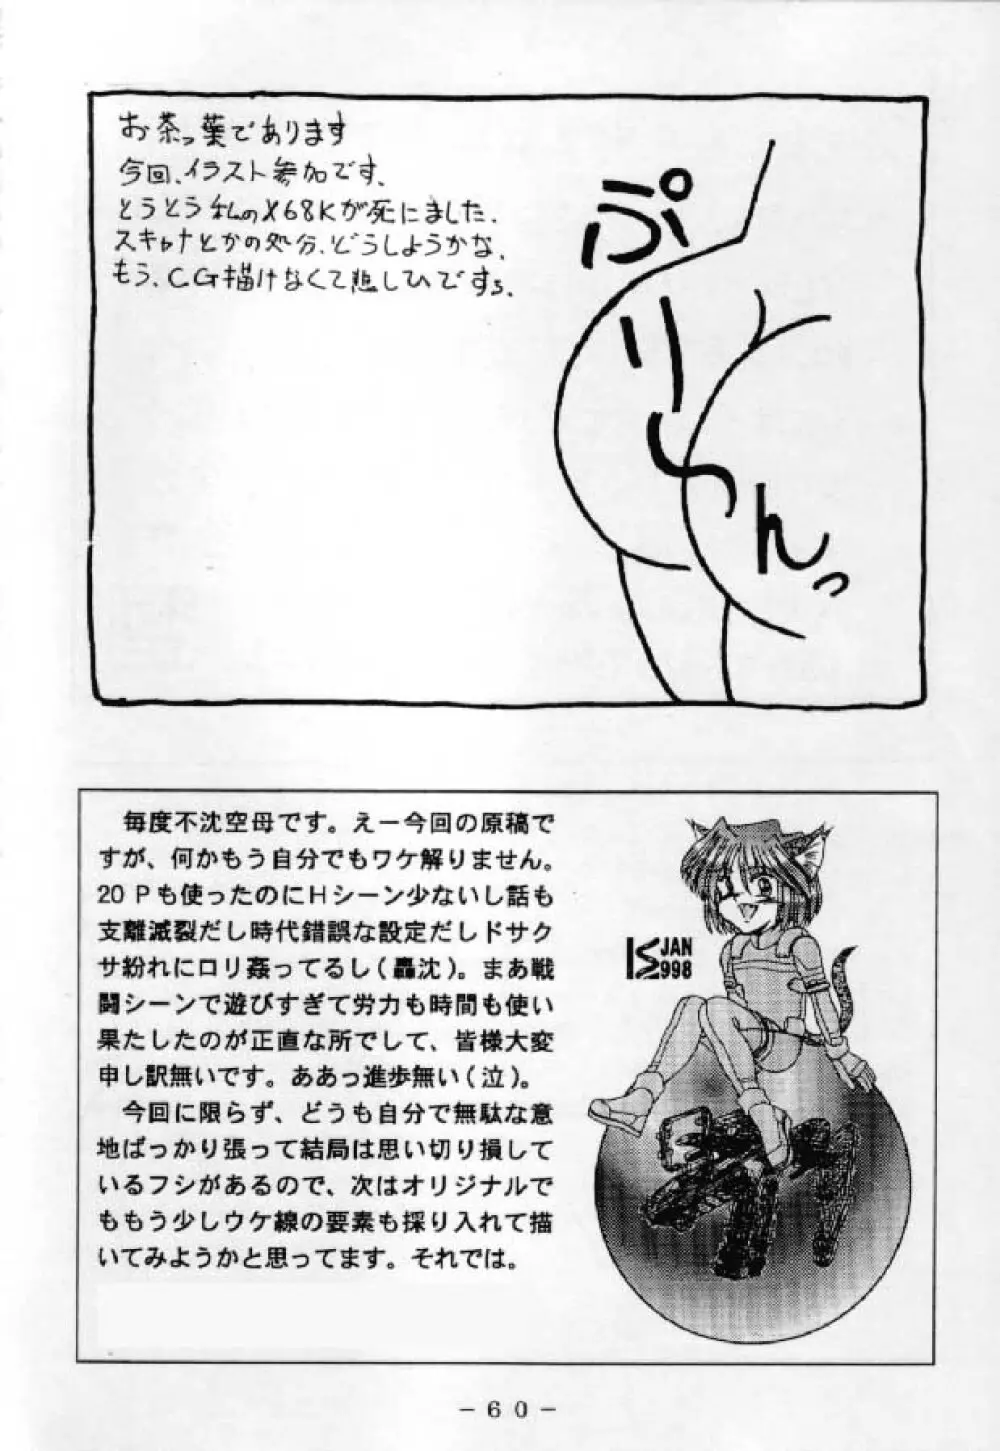 お茶っ葉であります
今回、イラスト参加です、
とうとう私のX68Kが死にました、
スキャナとかの処分、どうしようかな、
もう、CG描けなくて悲しひですっ。
ぷりぃんっ
毎度不沈空母です。えー今回の原稿で
すが、何かもう自分でもワケ解りません。
20Pも使ったのにHシーン少ないし話も
支離滅裂だし時代錯誤な設定だしドサク
サ紛れにロリ姦ってるし(轟沈)。まあ戦
闘シーンで遊びすぎて労力も時間も使い
果たしたのが正直な所でして、皆様大変
申し訳無いです。ああっ進歩無い(泣)。
今回に限らず、どうも自分で無駄な意
地ばっかり張って結局は思い切り損して
いるフシがあるので、次はオリジナルで
ももう少しウケ線の要素も採り入れて描
いてみようかと思ってます。それでは。
JAN
1998
－60－